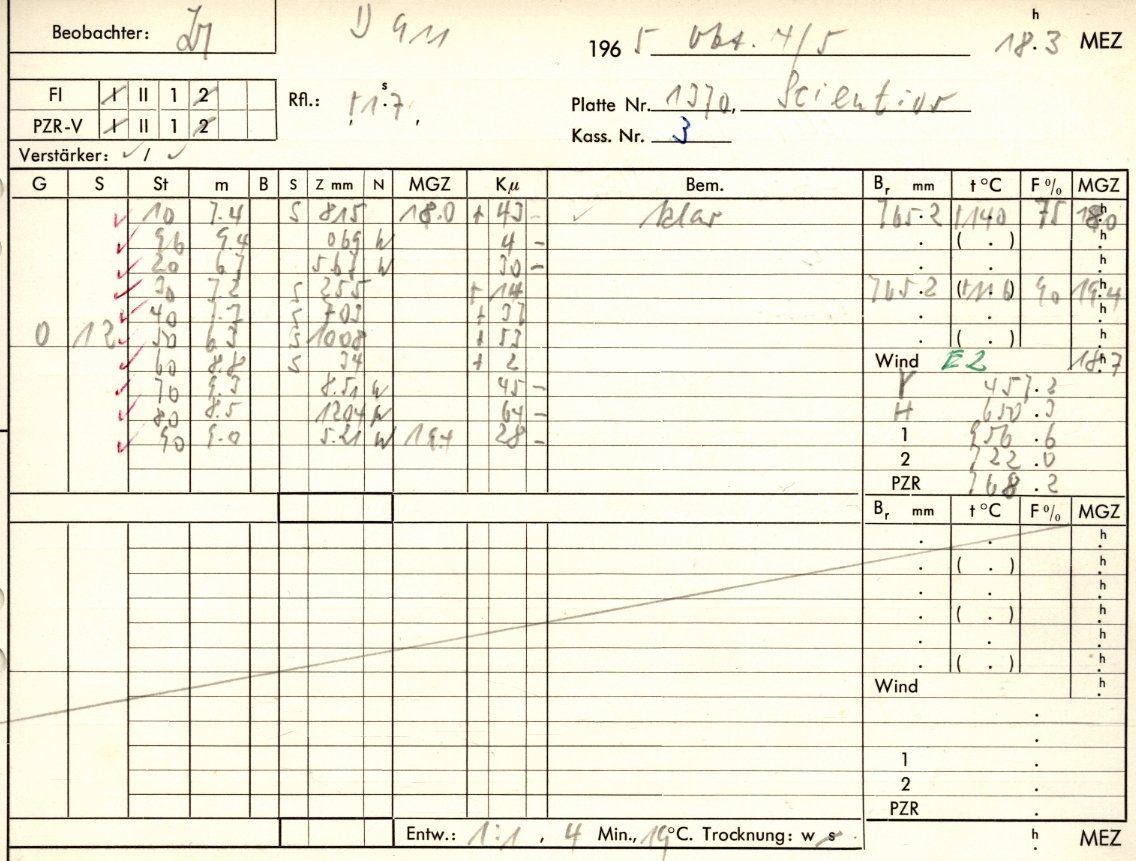 Beobachter:
D 911
196 5 Okt. 4/5 18.3 h MEZ
FI I II 1 2
PZR-V I II 1 2
Rfl.: +1.7 s
Platte Nr. 1370, Scientior
Kass. Nr. 3
Verstärker: ✓ / ✓
G S St m B S Z mm N MGZ Kμ Bem. Br mm t °C F % MGZ
10 7.4 S 815 18.0 + 43 - ✓ klar 765.2 75 18.0 h
069 W 4 - . ( . ) h
20 W 30 - . . h
30 7.2 S 255 + 14 765.2 90 19.4 h
40 S 703 + 37 . . h
0 12 50 6.3 S 1008 + 53 . ( . ) h
60 8.8 S 34 + 2 Wind E 2 18.7 h
70 9.3 W 45 - 457.2
80 8.5 1204 W 64 - H 650.3
90 9.0 5.21 W 19.4 28 - 1 956.6
2 722.0
PZR 768.2
Br mm t °C F % MGZ
. . h
. ( . ) h
. . h
. ( . ) h
. . h
. ( . ) h
Wind h
1 .
2 .
PZR .
Entw.: 1:1, 4 Min., 19°C. Trocknung: w s h MEZ